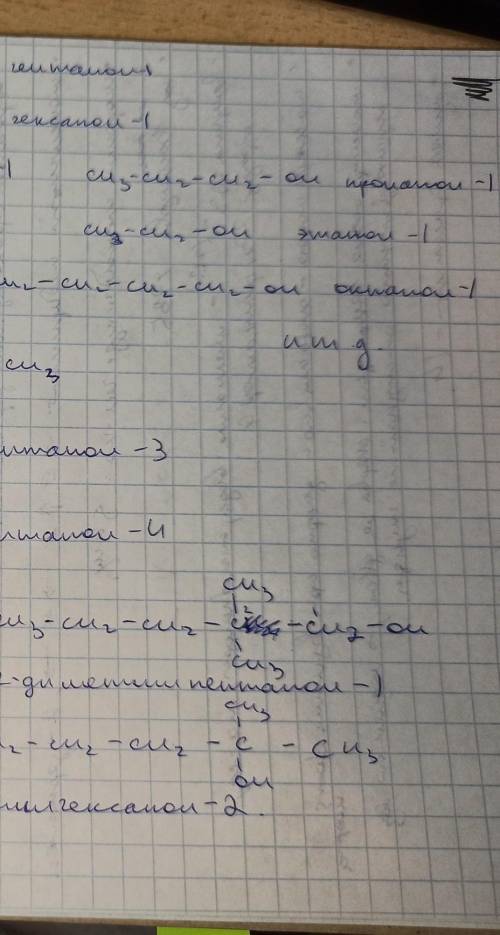 гептанол-1
гексанол-1
-1 CH3-CH2-CH2-OH пропанол-1
CH3-CH2-OH этанол-1
H2-CH2-CH2-CH2-OH октанол-1
и т.д.
CH3
птанол-3
птанол-4
CH3
2 1
CH3-CH2-CH2-C-CH2-OH
CH3
2-диметилпентанол-1
CH3
2-CH2-CH2-C-CH3
OH
илгексанол-2.